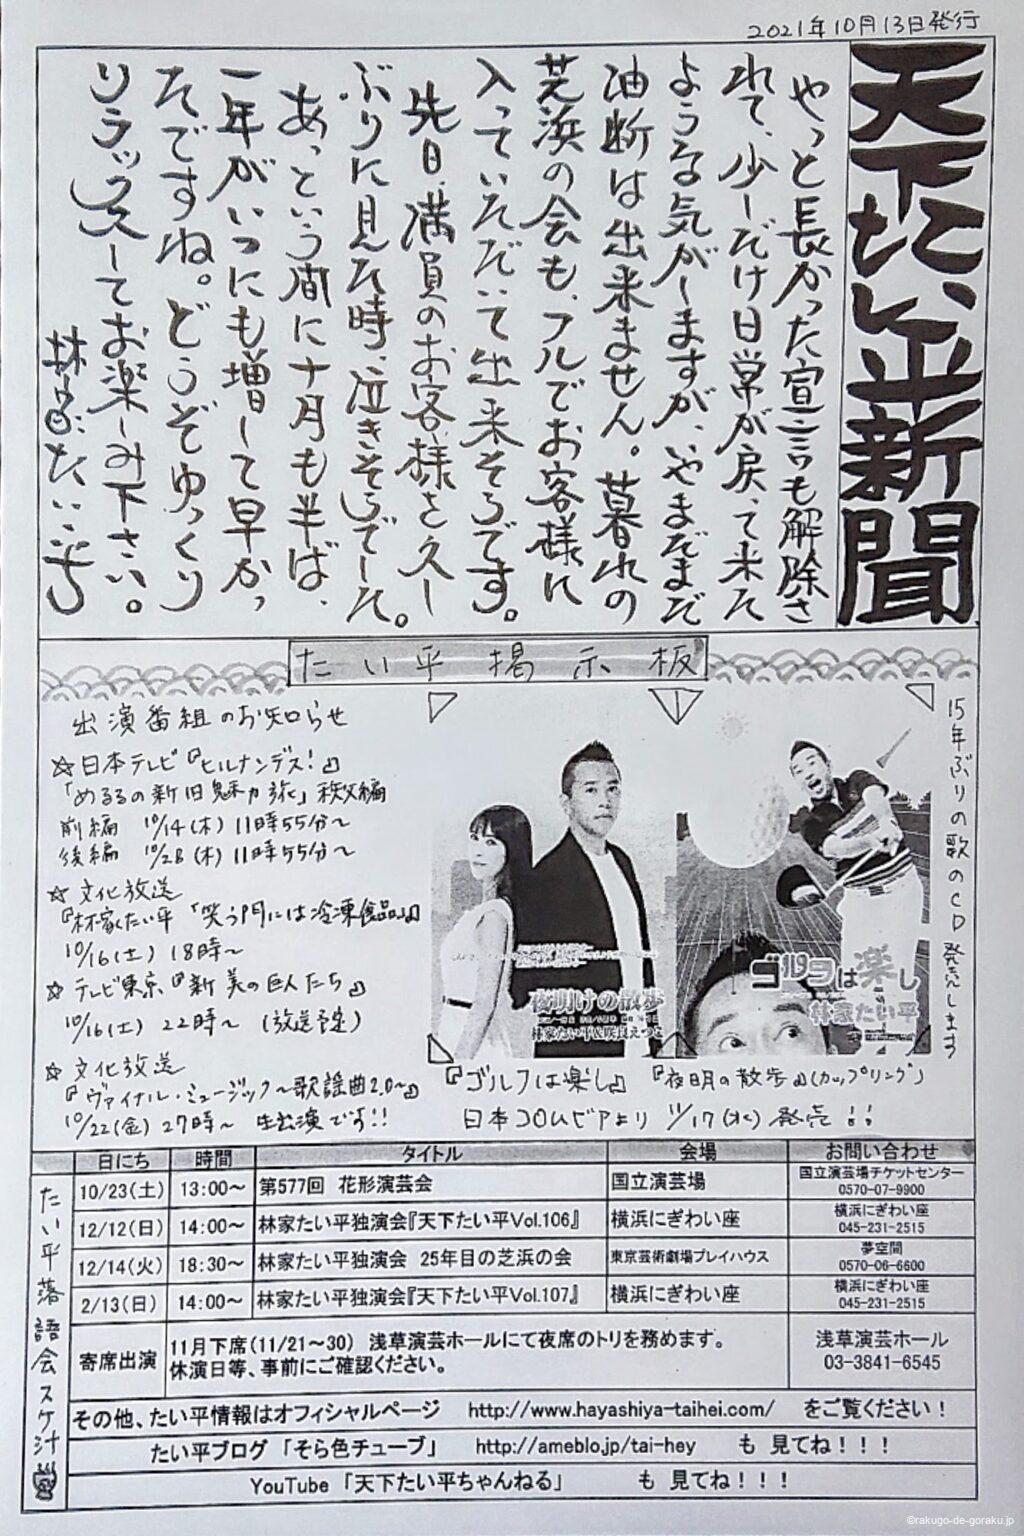 2021年10月13日発行
天下たい平新聞
やっと長かった宣言も解除さ
れて、少しだけ日常が戻って来た
ような気がしますが、いやまだまだ
油断は出来ません。暮れの
芝浜の会も、フルでお客様に
入っていただいて出来そうです。
先日、満員のお客様を久し
ぶりに見た時、泣きそうでした。
あっという間に十月も半ば、
一年がいつにも増して早かっ
たですね。どうぞゆっくり
リラックスしてお楽しみ下さい。
林家たい平
たい平掲示板
出演番組のお知らせ
☆日本テレビ『ヒルナンデス!』
「めるるの新旧魅力旅」秩父編
前編 10/14(木) 11時55分〜
後編 10/28(木) 11時55分〜
☆文化放送
『林家たい平「笑う門には冷凍食品」』
10/16(土) 18時〜
☆テレビ東京『新 美の巨人たち』
10/16(土) 22時〜 (放送予定)
☆文化放送
『ヴァイナル・ミュージック〜歌謡曲2.0〜』
10/22(金) 27時〜 生出演です!!
夜明けの散歩
林家たい平&咲良えつこ
ゴルフは楽し
林家たい平
15年ぶりの歌のCD発売します
『ゴルフは楽し』 『夜明の散歩』(カップリング)
日本コロムビアより 11/17(水) 発売!!
たい平落語会スケ汁
日にち 時間 タイトル 会場 お問い合わせ
10/23(土) 13:00〜 第577回 花形演芸会 国立演芸場 国立演芸場チケットセンター 0570-07-9900
12/12(日) 14:00〜 林家たい平独演会『天下たい平Vol.106』 横浜にぎわい座 横浜にぎわい座 045-231-2515
12/14(火) 18:30〜 林家たい平独演会 25年目の芝浜の会 東京芸術劇場プレイハウス 夢空間 0570-06-6600
2/13(日) 14:00〜 林家たい平独演会『天下たい平Vol.107』 横浜にぎわい座 横浜にぎわい座 045-231-2515
寄席出演 11月下席(11/21〜30) 浅草演芸ホールにて夜席のトリを務めます。
休演日等、事前にご確認ください。
浅草演芸ホール
03-3841-6545
その他、たい平情報はオフィシャルページ http://www.hayashiya-taihei.com/ をご覧ください!
たい平ブログ 「そら色チューブ」 http://ameblo.jp/tai-hey も 見てね!!!
YouTube 「天下たい平ちゃんねる」 も 見てね!!!
©rakugo-de-goraku.jp